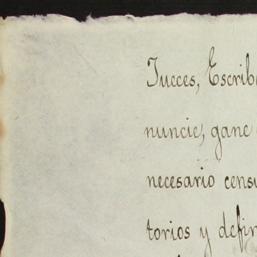 Jucces, Escrib
nuncie, gane
necesario cens
torios y defin